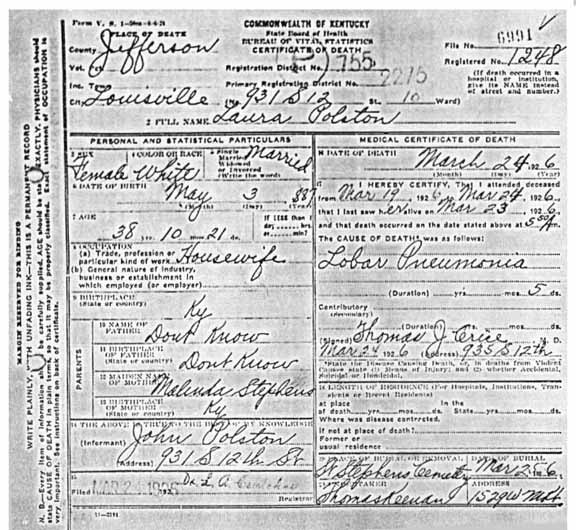 Form V. S. 1-50m-6-6-24
COMMONWEALTH OF KENTUCKY
State Board of Health
BUREAU OF VITAL STATISTICS
CERTIFICATE OF DEATH
1 PLACE OF DEATH
County Jefferson
File No. 6991
Vot. Pct.
Registration District No. 755
Registered No. 1248
Inc. Town
Primary Registration District No. 2215
(If death occurred in a hospital or institution, give its NAME instead of street and number.)
City Louisville (No. 931 S 12 St. 10 Ward)
2 FULL NAME Laura Polston
PERSONAL AND STATISTICAL PARTICULARS
3 SEX Female
4 COLOR OR RACE White
5 Single Married Widowed or Divorced (Write the word) Married
6 DATE OF BIRTH
May 3 887
(Month) (Day) (Year)
7 AGE
38 yrs. 10 mos. 21 ds.
IF LESS than 1 day hrs. or min?
8 OCCUPATION
(a) Trade, profession or particular kind of work Housewife
(b) General nature of Industry, business or establishment in which employed (or employer)
9 BIRTHPLACE
(State or country) Ky
PARENTS
10 NAME OF FATHER Dont Know
11 BIRTHPLACE OF FATHER
(State or country) Dont Know
12 MAIDEN NAME OF MOTHER Malinda Stephens
13 BIRTHPLACE OF MOTHER
(State or country) Ky
14 THE ABOVE IS TRUE TO THE BEST OF MY KNOWLEDGE
(Informant) John Polston
(Address) 931 S 12th St
15
Filed
Registrar
11-2191
MEDICAL CERTIFICATE OF DEATH
16 DATE OF DEATH
March 24, 1926
(Month) (Day) (Year)
17 I HEREBY CERTIFY, That I attended deceased
from Mar 19, 1926, to Mar 24, 1926,
that I last saw her alive on Mar 23, 1926,
and that death occurred on the date stated above at
The CAUSE OF DEATH was as follows:
Lobar Pneumonia
(Duration) yrs. mos. 5 ds.
Contributory
(Secondary)
(Duration) yrs. mos. ds.
(Signed) Thomas J. Crice M. D.
Mar 24 1926 (Address) 935 S 12th
State the Disease Causing Death, or, in deaths from Violent Causes state (1) Means of Injury; and (2) whether Accidental, Suicidal or Homicidal.
18 LENGTH OF RESIDENCE (For Hospitals, Institutions, Transients or Recent Residents)
At place of death yrs. mos. ds.
In the State yrs. mos. ds.
Where was disease contracted,
If not at place of death?
Former or
usual residence
19 PLACE OF BURIAL OR REMOVAL
St Stephens Cemetery
DATE OF BURIAL
Mar 25, 6
20 UNDERTAKER
Thomas Keenan
ADDRESS
MARGIN RESERVED FOR BINDING
WRITE PLAINLY, WITH UNFADING INK—THIS IS A PERMANENT RECORD
N. B.—Every item of information should be carefully supplied. AGE should be stated EXACTLY. PHYSICIANS should state CAUSE OF DEATH in plain terms, so that it may be properly classified. Exact statement of OCCUPATION is very important. See instructions on back of certificate.